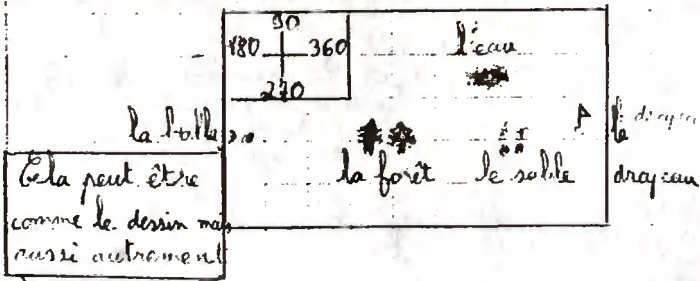 90
180 360
270
l'eau
la balle
la forêt le sable
le drapeau
Cela peut être
comme le dessin mais
aussi autrement